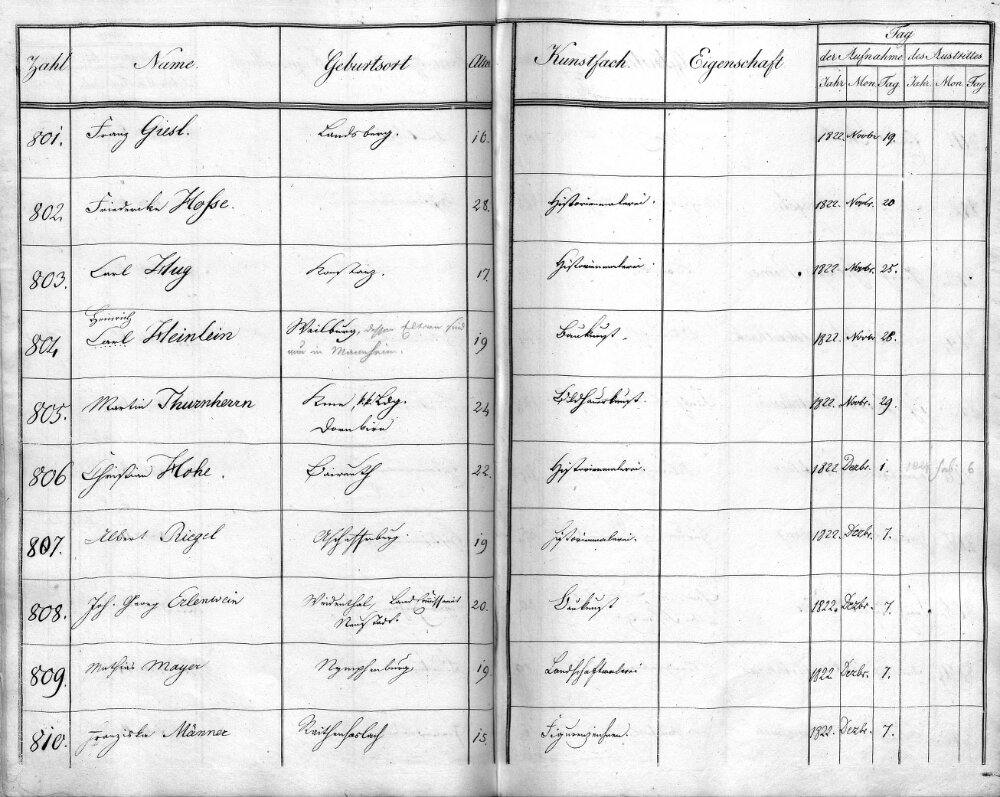 Tag
Zahl Name. Geburtsort Alter Kunstfach. Eigenschaft der Aufnahme des Austrittes
Jahr Mon Tag Jahr. Mon. Tag
801. Franz Giesl. Landsberg. 16. 1822. Novbr 19.
802 Friedericke Hosse. 28. Historienmalerei. 1822. Novbr. 20
803. Carl Hug Konstanz. 17. Historienmalerei. 1822. Novbr. 25.
Heinrich
804 Carl Heinlein Weilburg, dessen Eltern sind 19 Baukunst. 1822. Novbr 28.
nun in Mannheim.
805. Martin Thurnherrn 24 Bildhauerkunst. 1822. Novbr. 29.
Dornbirn
806 Christian Hohe. Baireuth 22. Historienmalerei. 1822 Dezbr. 1. 6
807. Albert Riegel Aschaffenburg 19 Historienmalerei. 1822. Dezbr. 7.
808. Joh. Georg Erlenwein Weidenthal, Landkommissariat 20. Baukunst 1822. Dezbr. 7.
Neustadt.
809. Mathias Mayer Nymphenburg 19. Landschaftmalerei 1822 Dezbr. 7.
810. Franziska Männer Raithenhaslach 15. Figurenzeichnen. 1822. Dezbr. 7.